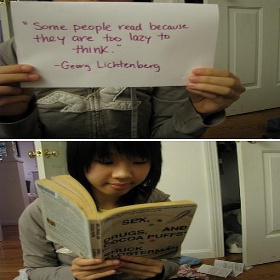 "Some people read because
they are too lazy to
think."
-Georg Lichtenberg
SEX,
DRUGS, AND
COCOA PUFFS
CHUCK
KLOSTERMAN